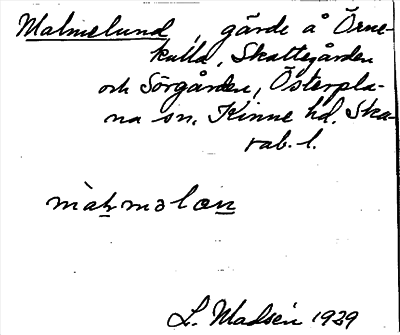 Malmelund, gärde å Örne-
kulla, Skattegården
och Sörgården, Österpla-
na sn. Kinne hd. Ska-
rab. l.
L. Madsén 1929